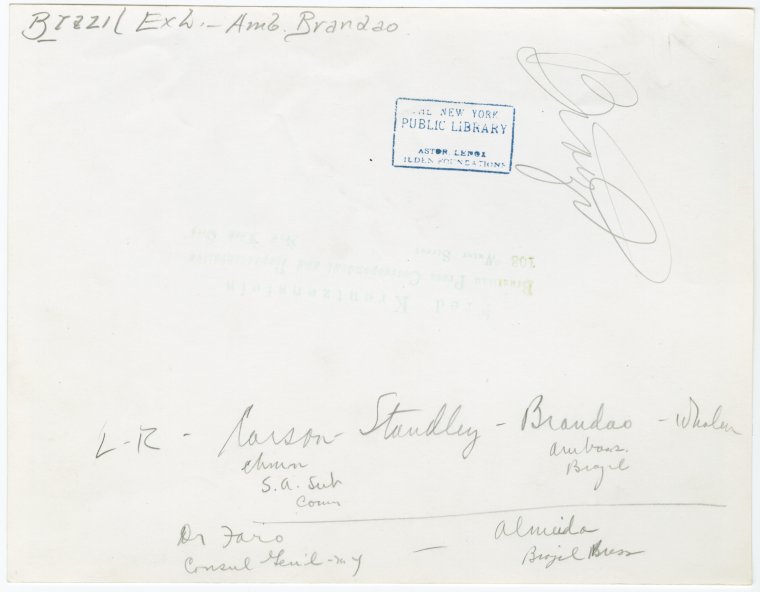 Brazil Exh. - Amb. Brandao
Brazil
THE NEW YORK
PUBLIC LIBRARY
ASTOR, LENOX
TILDEN FOUNDATIONS
Fred Kreutzenstein
Brazilian Press Correspondent and Representative
108 Water Street
New York City
L-R - Carson - Standley - Brandao - Whalen
chmn
S.A. Sub
Comm
Ambass.
Brazil
Dr Faro - Almeida
Consul Gen'l - NY
Brazil Press